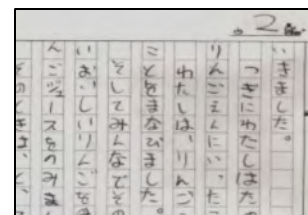 2
いきました。
つぎにわたしはた
りんごえんにいった
わたしは、りんご
ことをまなびました。
そしてみんなでその
いおいしいりんごを
んごジュースをのみま
そのときは、と、